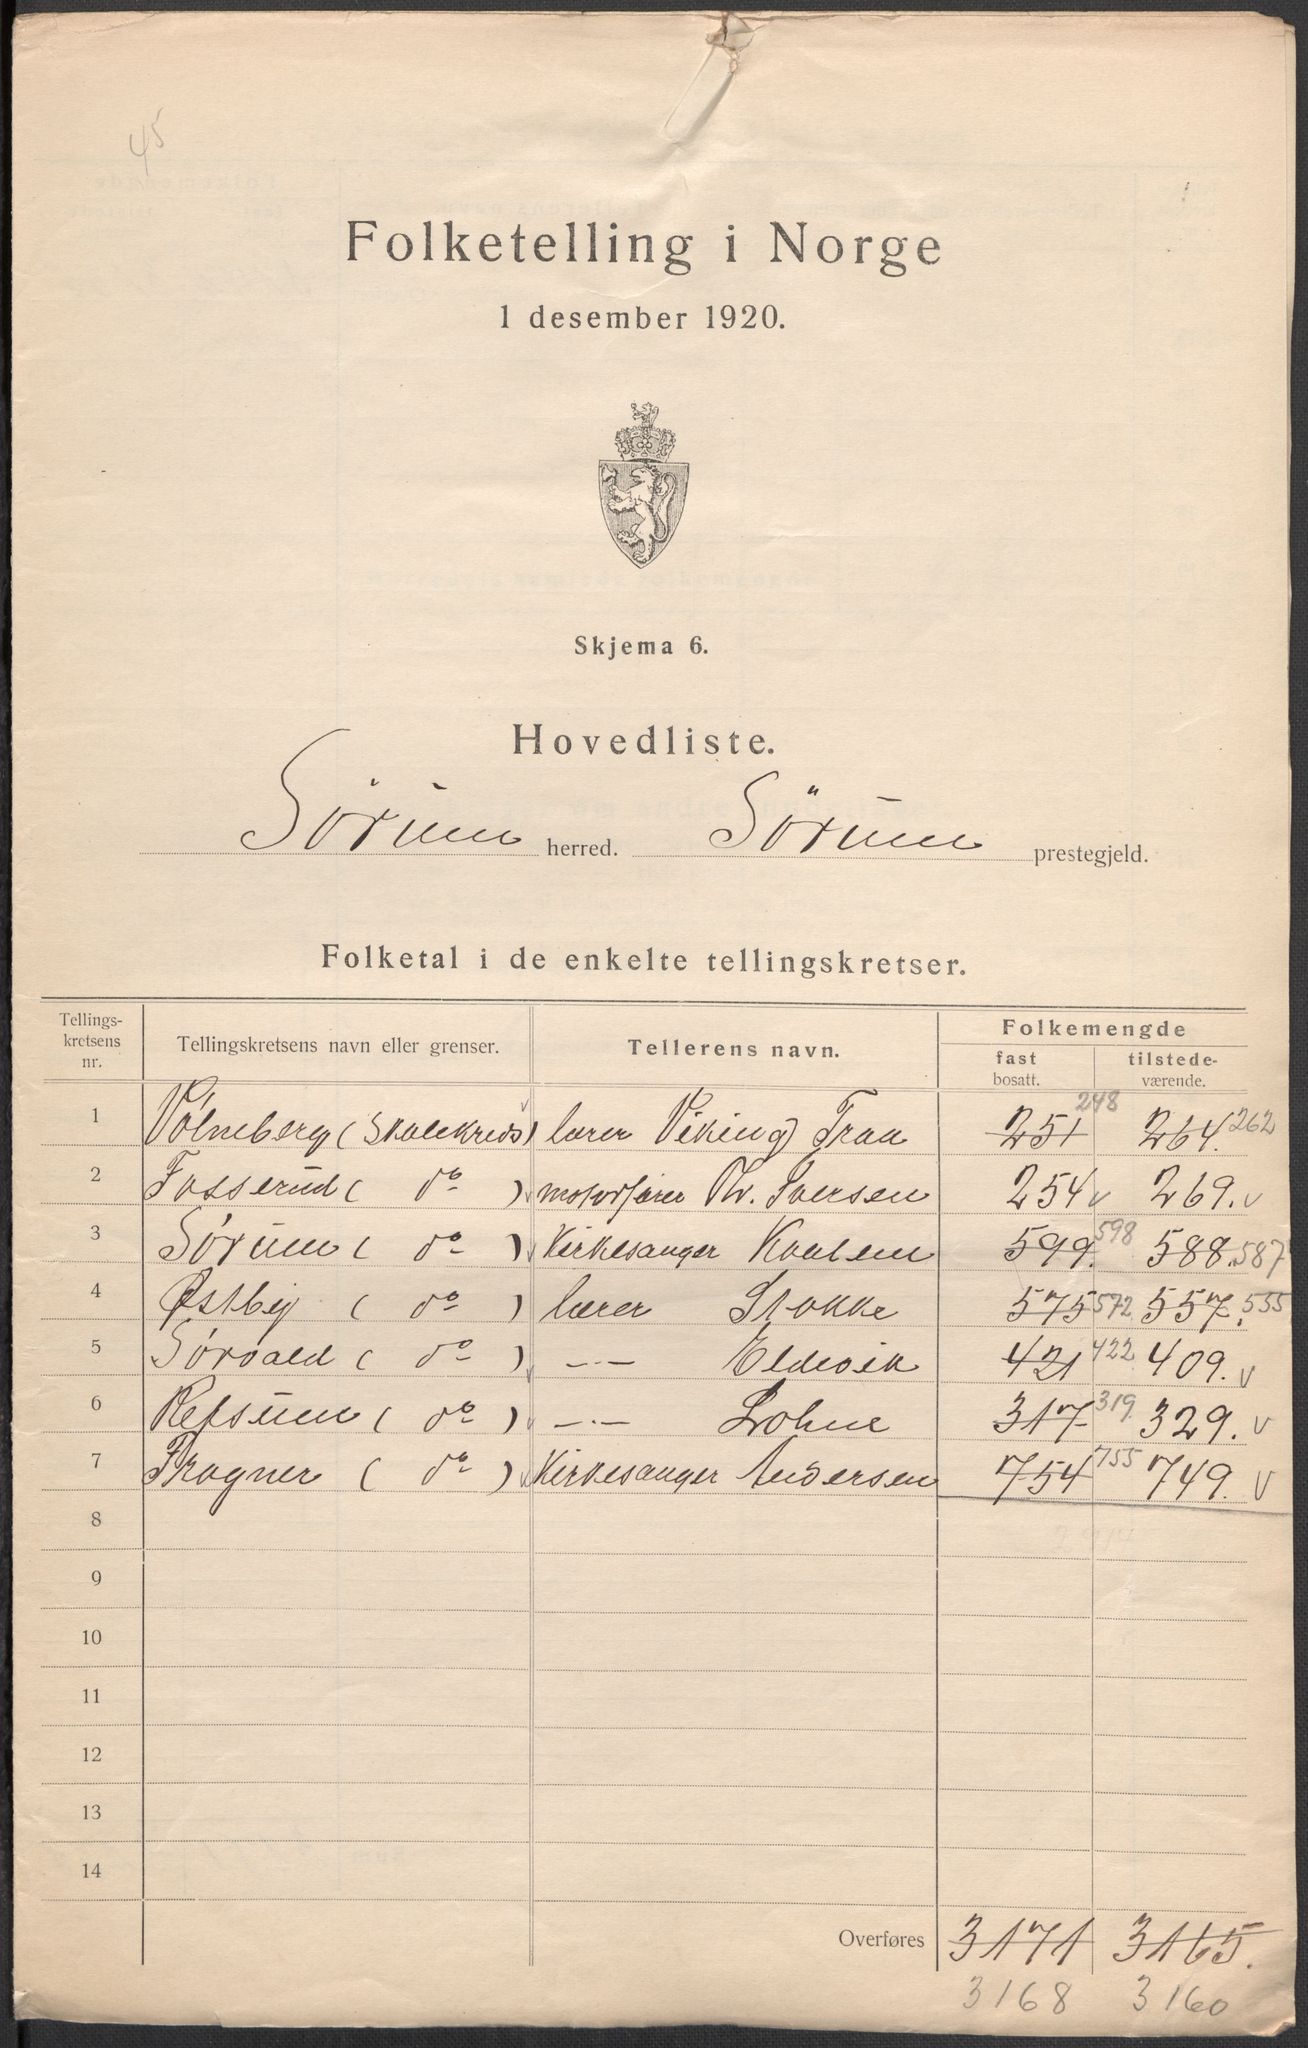 45
Folketelling i Norge
1 desember 1920.
Skjema 6.
Hovedliste.
Sørum herred. Sørum prestegjeld.
Folketal i de enkelte tellingskretser.
Tellings-
kretsens
nr.
Tellingskretsens navn eller grenser.
Tellerens navn.
Folkemengde
fast
bosatt.
tilstede-
værende.
1 Vølneberg (Skolekreds) lærer Viking Traa 251 248 264. 262
2 Fosserud ( do ) motorfører Iversen 254 v 269. v
3 Sørum ( do ) Kirkesanger 599. 598 588. 587
4 Østby ( do ) lærer Stokke 575 572 557. 555
5 Sørvald ( do ) –"– Eldevik 421 422 409. v
6 Refsum ( do ) –"– Lohne 317 319 329. v
7 Frogner ( do ) Kirkesanger Andersen 754 755 749. v
8
9
10
11
12
13
14
Overføres 3171 3165.
3168 3160